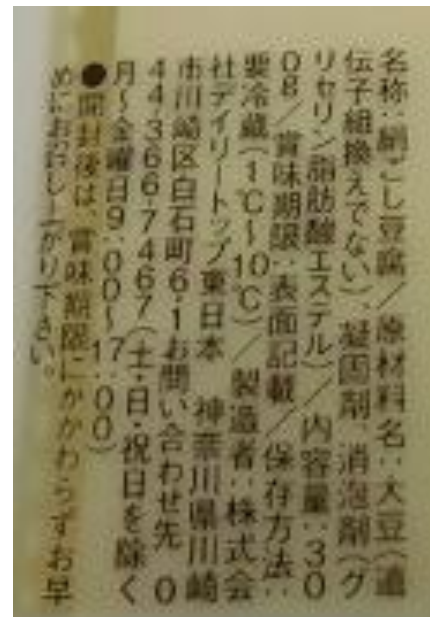 名称:絹ごし豆腐/原材料名:大豆(遺
伝子組換えでない)、凝固剤、消泡剤(グ
リセリン脂肪酸エステル)/内容量:30
0g/賞味期限:表面記載/保存方法:
要冷蔵(1℃~10℃)/製造者:株式会
社デイリートップ東日本 神奈川県川崎
市川崎区白石町6-1お問い合わせ先 0
44-366-7467(土・日・祝日を除く
月~金曜日9:00~17:00)
●開封後は、賞味期限にかかわらずお早
めにお召し上がり下さい。